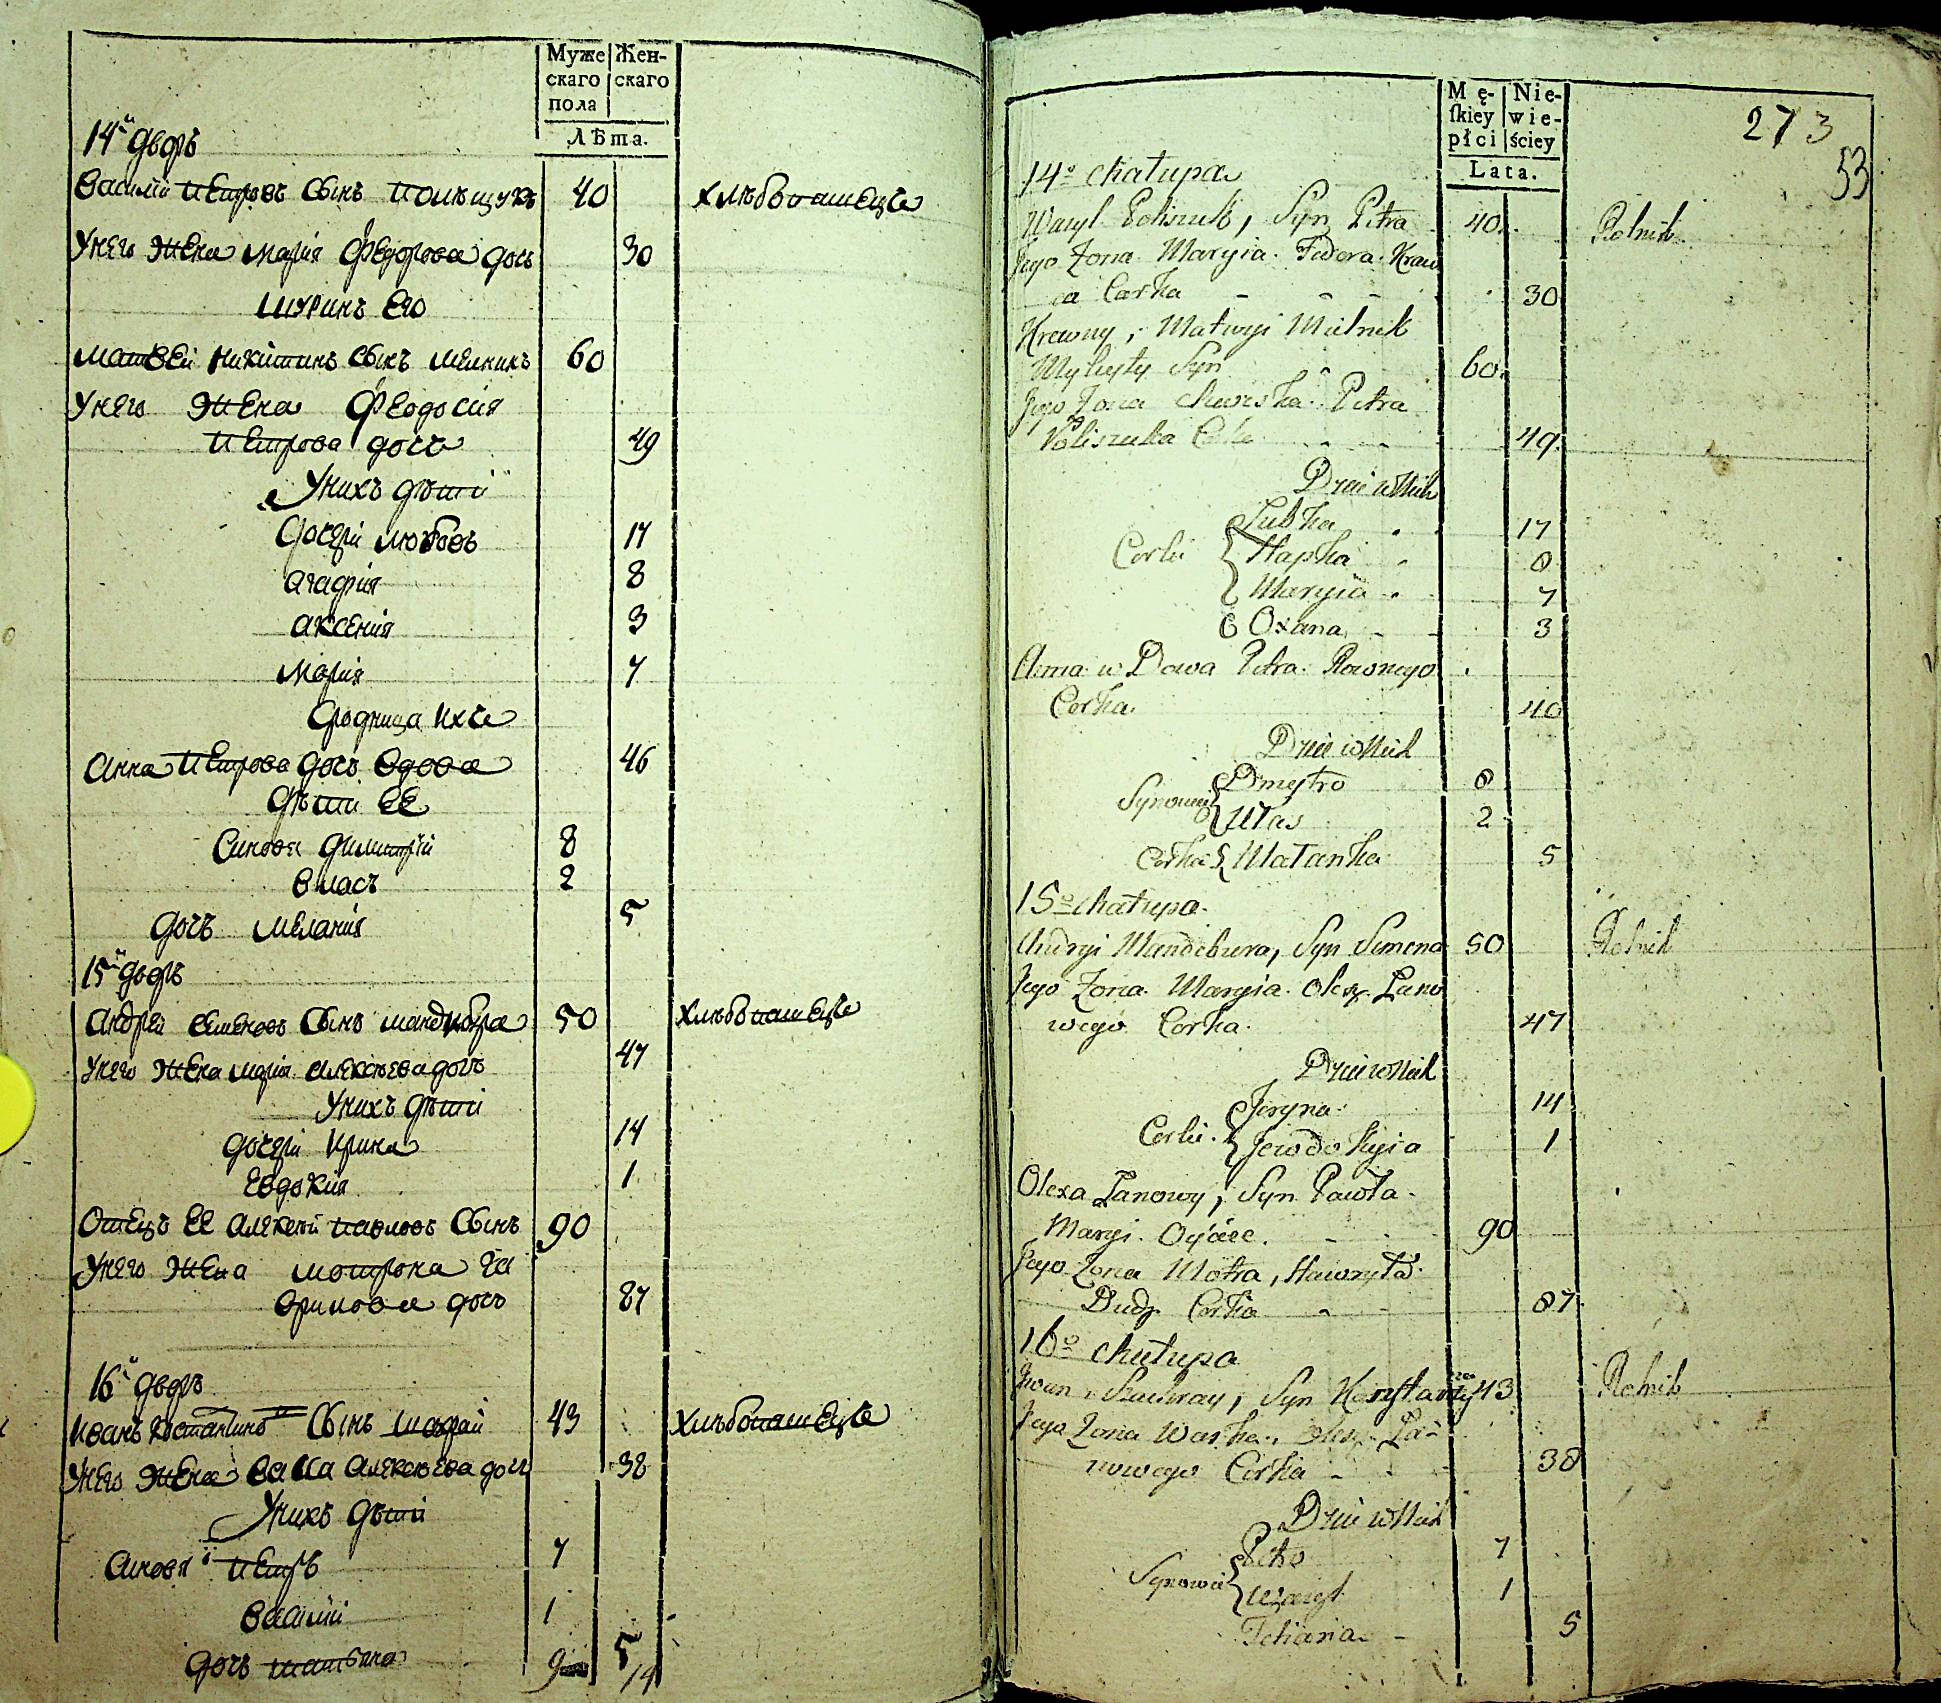 Муже Жен-
скаго скаго
пола
Лѣта.
14й дворъ
Василій Петровъ Сынъ Полѣщукъ 40 хлѣбопашецъ
Унего жена марія федорова дочь 30
шуринъ Его
матвей никитинъ сынъ мелникъ 60
Унего жена феодосія
Петрова дочь 49
Унихъ дѣти
дочери любовь 17
агафія 8
аксенія 3
марія 7
Сродница ихъ
анна Петрова дочь вдова 46
дѣти ЕЕ
Синовя димитрій 8
власъ 2
дочь меланія 5
15й дворъ
андрей семеновъ Сынъ мандибура 50 хлѣбопашецъ
Унего жена марія алексѣева дочь 47
Унихъ дѣти
дочери ирина 14
Евдокія 1
Отецъ ЕЕ алексѣй павловъ Сынъ 90
Унего жена мотрона га
врилова дочь 87
16й дворъ
иванъ костантиновъ Сынъ 43 хлѣбопашецъ
Унего жена васка алексѣева дочь 38
Унихъ дѣти
Синовя петръ 7
василій 1
дочь татияна 5
9 14
Mę- Nie-
ſkiey wie-
płci ściey
Lata.
273
53
14o chałupa
Wasyl Poliszuk, Syn Petra 40 Rolnik
Jego Zona Maryia Fedora Kraw
ca Corka 30
Krewny, Matwyi Mielnik
Mykyty Syn 60
Jego Zona Petra
Poliszuka Corka 49
Dzieci w Nich
Lubka 17
Corki Hapka 8
Maryia 7
Oxana 3
Anna w Dowa Petra Rownego
Corka 40
Dzieci w Nich
Dmytro 8
Synowie Włas 2
Corka Małanka 5
15o chałupa
Andryi Mandebura, Syn Semena 50 Rolnik
Jego Zona Maryia Olexy Łano
wego Corka 47
Dzieci w Nich
Jaryna 14
Corki Jewdokyia 1
Olexa Łanowy, Syn Pawła
Maryi Oyciec 90
Jego Zona Motra, Hawryła
Dudy Corka 87
16o chałupa
Jwan Szachray, Syn Konstantego 43 Rolnik
Jego Zona Waska, Olexy Ła-
nowego Corka 38
Dzieci w Nich
Petro 7
Synowie Wasyl 1
Tetiana 5